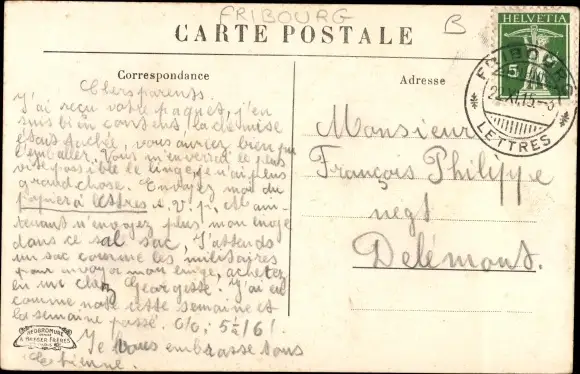 FRIBOURG
B
CARTE POSTALE
Correspondance
Adresse
HELVETIA
5
FRIBOURG
LETTRES
Chers parents.
J'ai reçu votre paquet, j'en
suis bien content, la chemise
était tachée, vous auriez bien pu
l'emballer. Vous m'enverrai le plus
vite possible le linge, je n'ai plus
grand chose. Envoyez moi du
papier à lettres s. v. p. Main-
tenant n'envoyez plus mon linge
dans ce sal sac, J'attends
un sac comme les militaires
pour envoyer mon linge, achetez
en un chez Georgette. J'ai eu
comme note cette semaine et
la semaine passé.
Je vous embrasse tous
Etienne.
Monsieur
François Philippe
negt
Delémont.